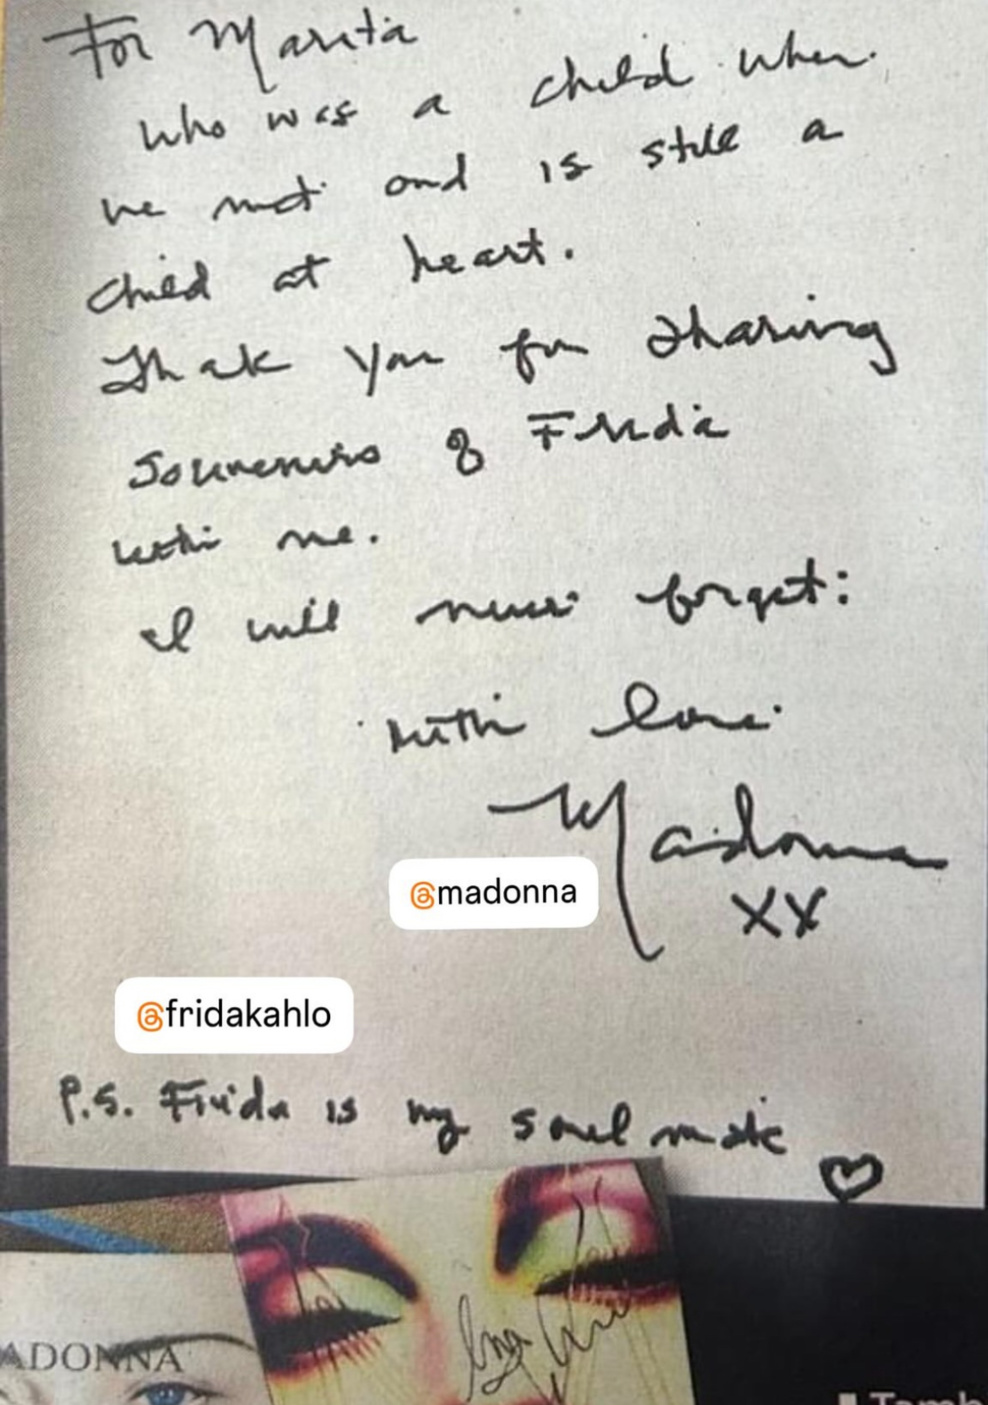 For Marita
who was a child when
we met and is still a
child at heart.
Thak you for sharing
souvenirs of Frida
with me.
I will never forget:
with love
Madonna
XX
@madonna
@fridakahlo
P.S. Frida is my soul mate
ADONNA